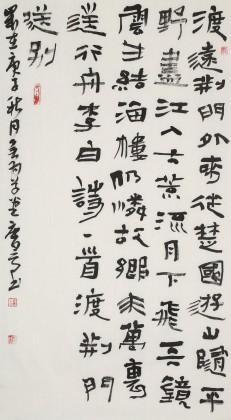 渡遠荆門外來從楚國游山隨平
野盡江入大荒流月下飛天鏡
雲生結海樓仍憐故鄉水萬里
送行舟李白詩一首渡荆門
送别
歲在庚子秋月